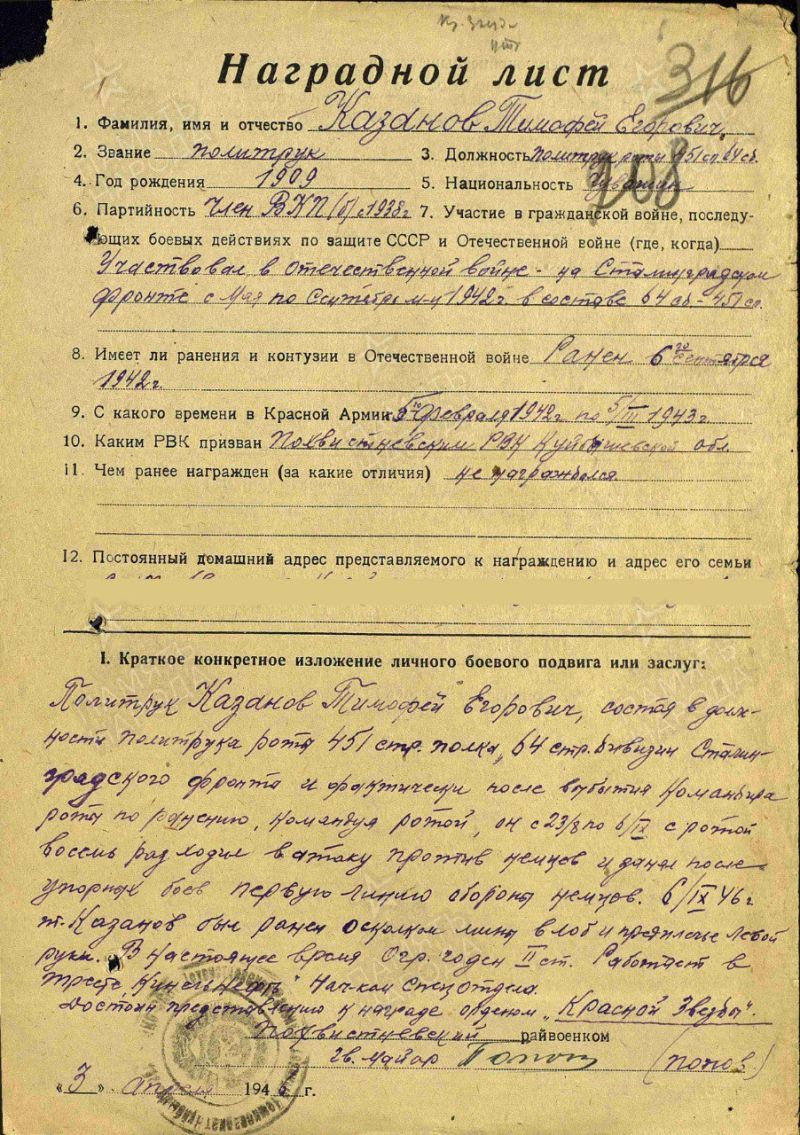 Кр. Звезд
316
Наградной лист
1. Фамилия, имя и отчество Казанов Тимофей Егорович
2. Звание политрук 3. Должность политрук роты 451 сп 64 сд.
208
4. Год рождения 1909 5. Национальность Чуваши
6. Партийность член ВКП(б) с 1938 г 7. Участие в гражданской войне, последу-
ющих боевых действиях по защите СССР и Отечественной войне (где, когда)
Участвовал в отечественной войне - на Сталинградском
фронте с мая по Сентябрь м-ц 1942 г. в составе 64 сд - 451 сп.
8. Имеет ли ранения и контузии в Отечественной войне Ранен 6го сентября
1942 г
9. С какого времени в Красной Армии 5го февраля 1942 г по 5/III 1943 г
10. Каким РВК призван Похвистневским РВК Куйбышевской обл.
11. Чем ранее награжден (за какие отличия) не награждался
12. Постоянный домашний адрес представляемого к награждению и адрес его семьи
I. Краткое конкретное изложение личного боевого подвига или заслуг:
Политрук Казанов Тимофей Егорович, состоя в долж-
ности политрука роты 451 стр. полка, 64 стр. дивизии Сталин-
градского фронта и фактически после выбытия командира
роты по ранению, командуя ротой, он с 23/8 по 6/IX с ротой
восемь раз ходил в атаку против немцев и занял после
упорных боев первую линию обороны немцев. 6/IX 46 г
т. Казанов был ранен осколком мины в лоб и предплечье левой
руки. В настоящее время Огр. годен II ст. Работает в
тресте „Кинельнефть" Нач-ком Спецотдела.
Достоин представлению к награде орденом „Красной Звезды".
Похвистневский райвоенком
гв. майор Попов (Попов)
„3" апреля 1946 г.